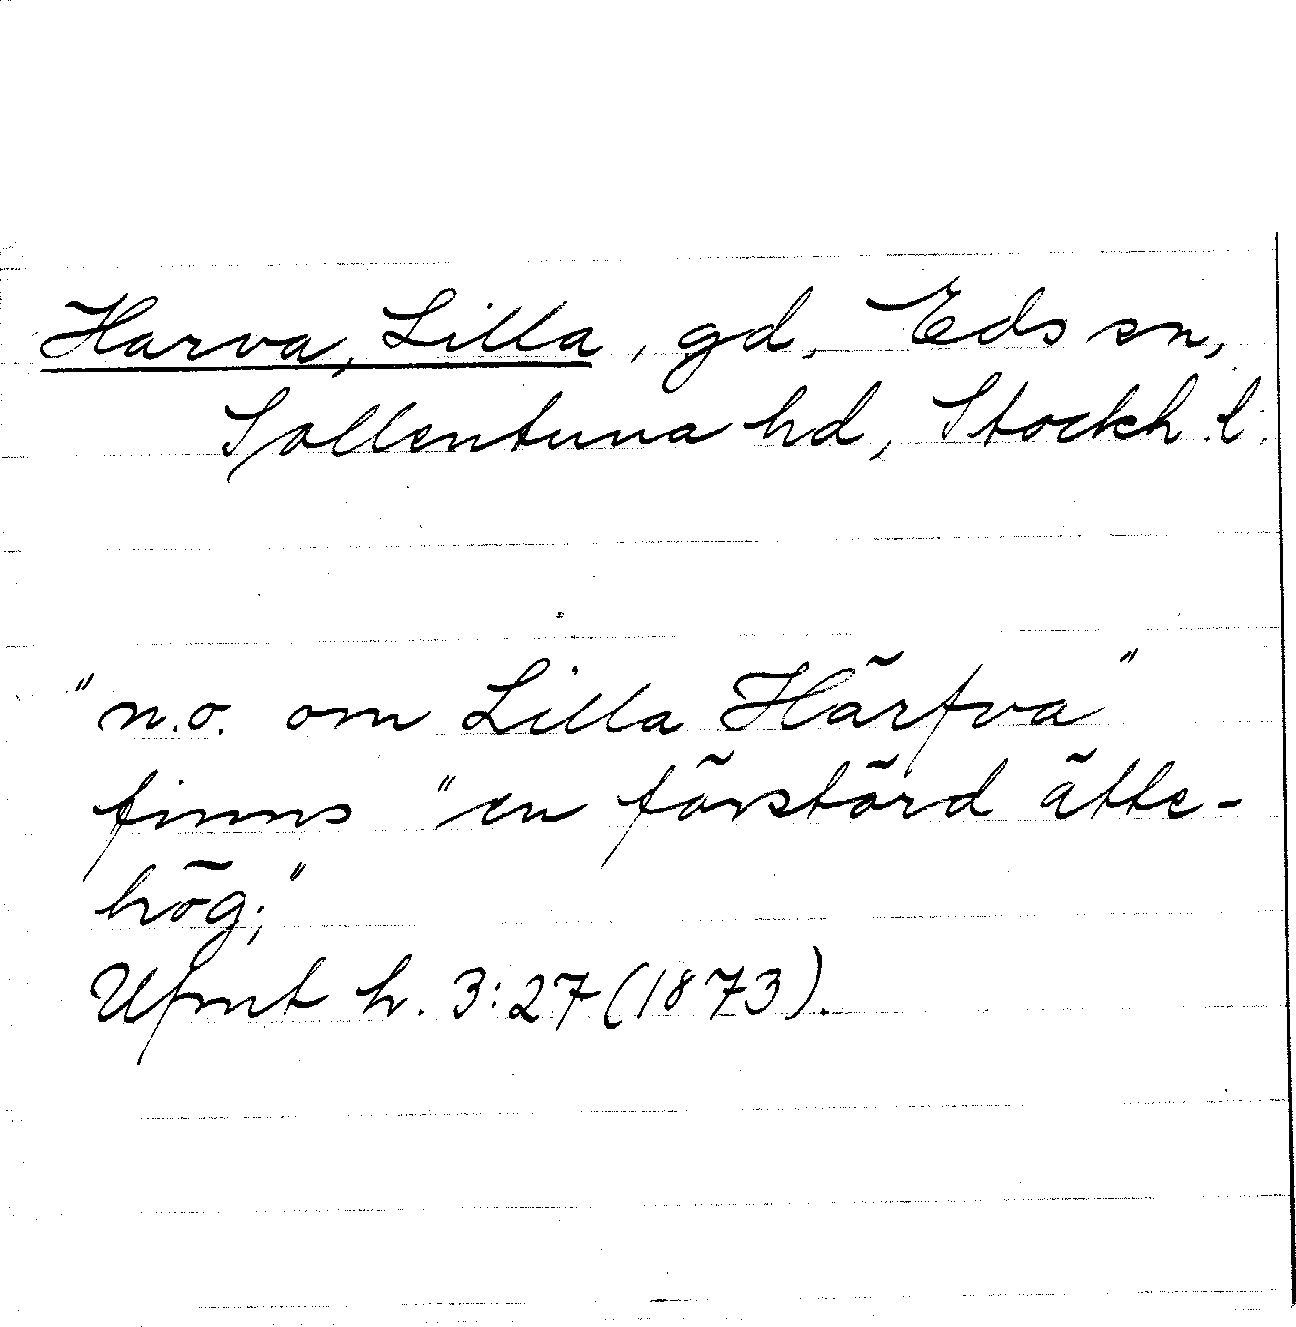 Harva, Lilla, gd, Eds sn,
Sollentuna hd, Stockh. l.
"n.o. om Lilla Härfva"
finns "en förstörd ätte-
hög;"
Ufmt h. 3:27 (1873).